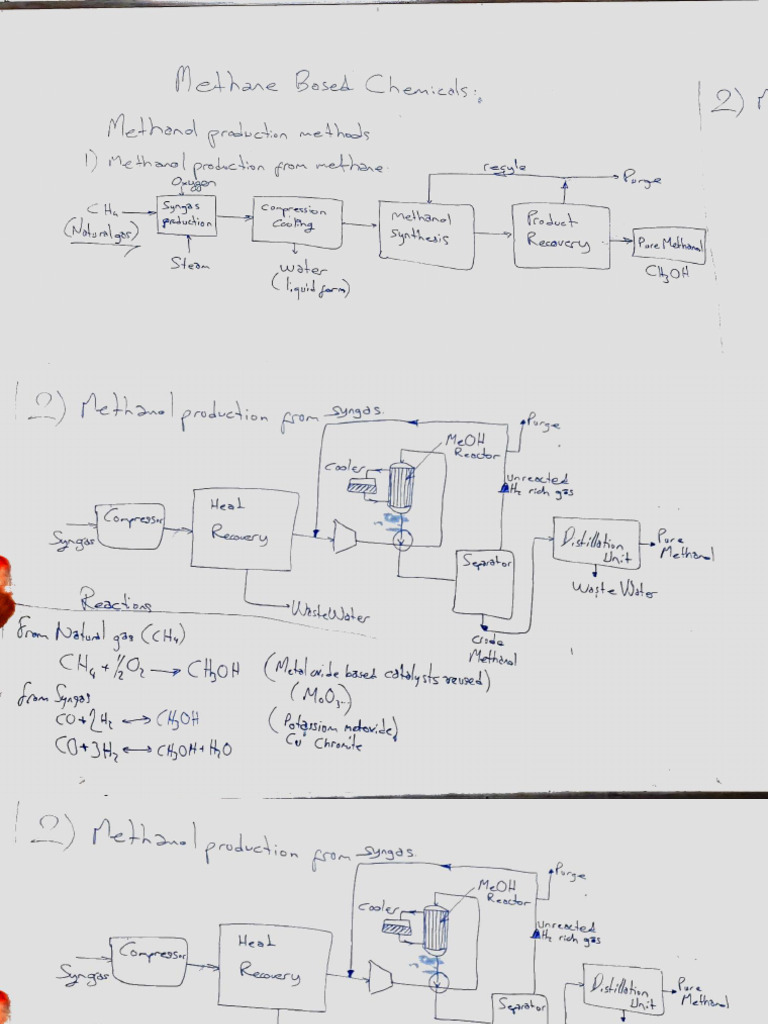 Methane Based Chemicals:
2) M
Methanol production methods
1) Methanol production from methane.
Oxygen
recycle
Purge
CH4
(Natural gas)
Syngas production
Compression Cooling
Methanol synthesis
Product Recovery
Pure Methanol
Steam
Water
(liquid form)
CH3OH
2) Methanol production from syngas.
Purge
MeOH Reactor
Cooler
unreacted
H2 rich gas
Heat Recovery
Compressor
Syngas
Separator
Distillation Unit
Pure Methanol
Waste Water
Waste Water
Crude Methanol
Reactions
from Natural gas (CH4)
CH4 + ½O2 → CH3OH (Metal oxide based catalysts reused)
(MoO3)
from Syngas
CO + 2H2 ↔ CH3OH (Potassium methoxide)
Cu Chromite
CO + 3H2 ↔ CH3OH + H2O
2) Methanol production from syngas.
Purge
MeOH Reactor
Cooler
unreacted
H2 rich gas
Heat Recovery
Compressor
Syngas
Separator
Distillation Unit
Pure Methanol